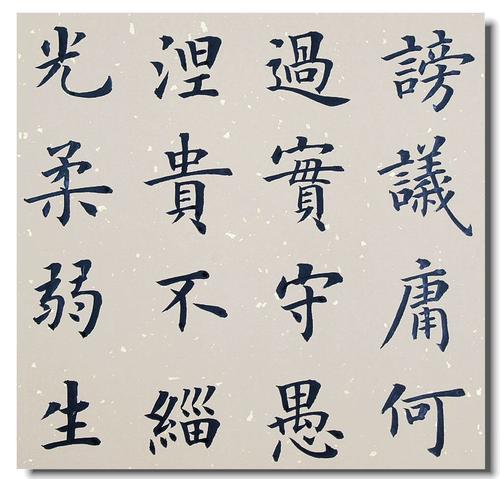 謗議庸何
過實守愚
涅貴不緇
光柔弱生